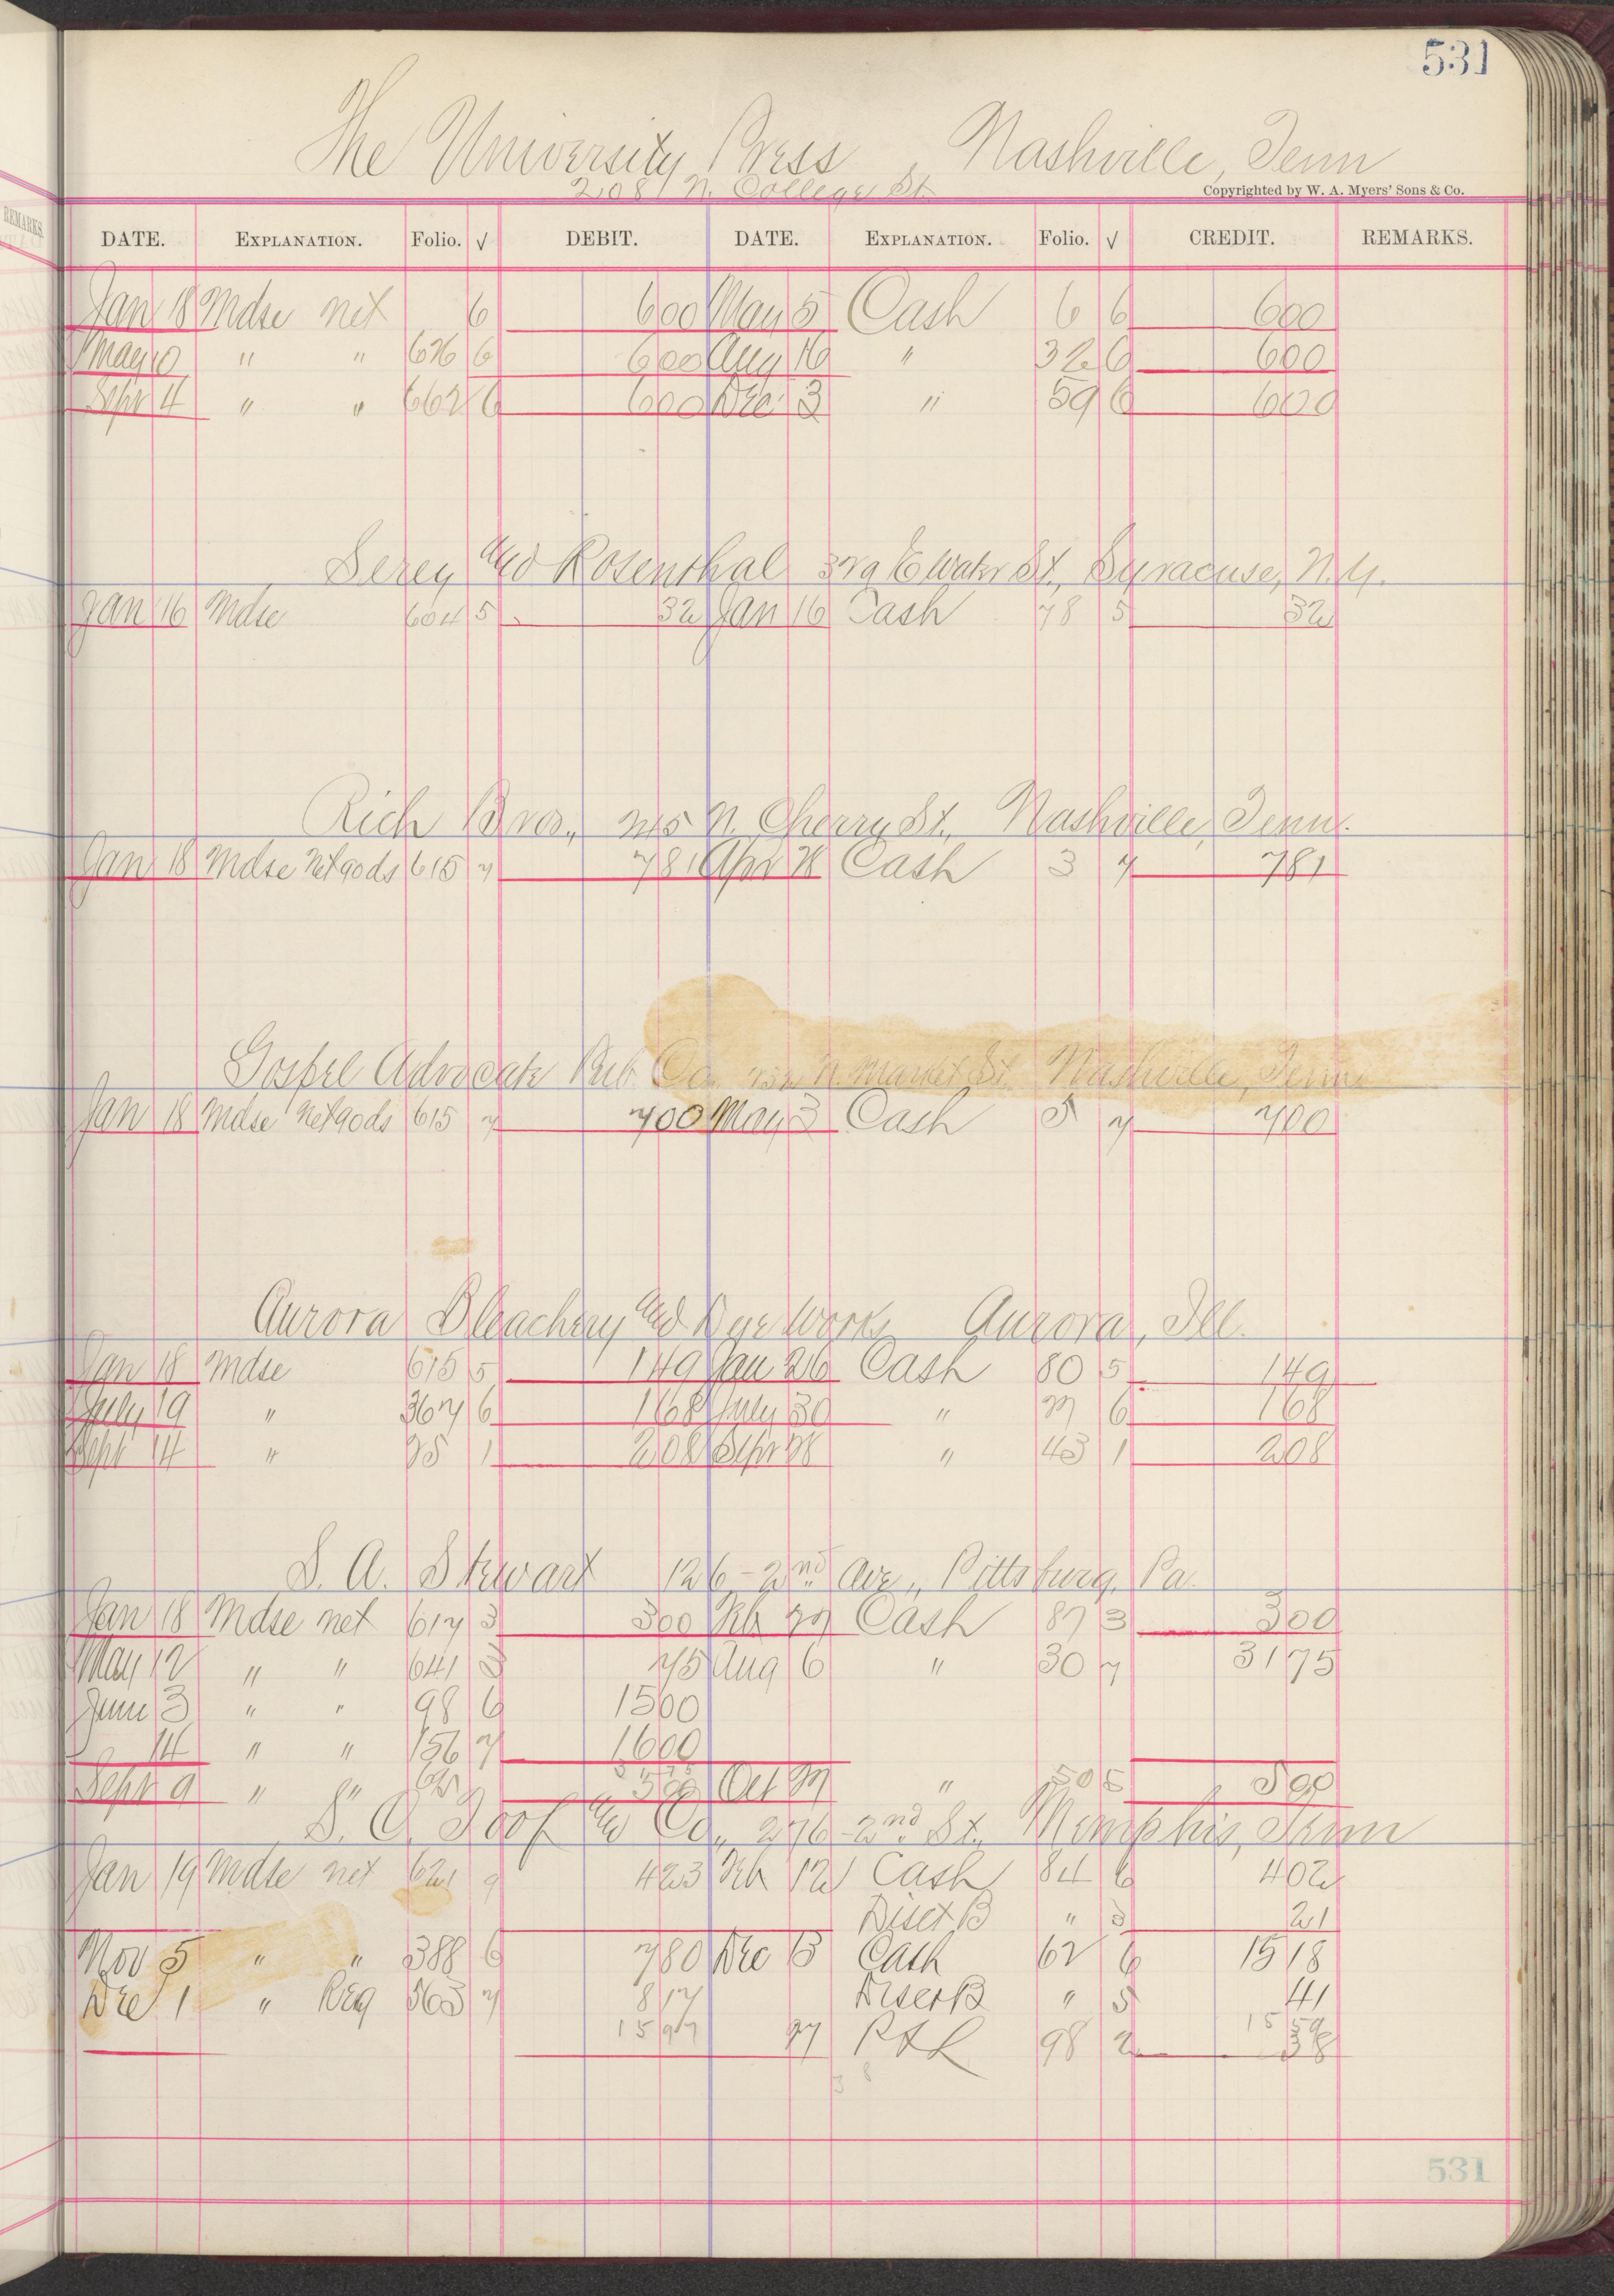 531
The University Press, Nashville, Tenn
208 N. College St.
Copyrighted by W. A. Myers' Sons & Co.
DATE. EXPLANATION. Folio. √ DEBIT. DATE. EXPLANATION. Folio. √ CREDIT. REMARKS.
Jan 18 Mdse net 6 600 May 5 Cash 6 6 600
May 10 " " 626 6 600 Aug 16 " 32 6 600
Sept 4 " " 662 6 600 Dec 3 " 59 6 600
and Rosenthal 329 E Water St., Syracuse, N.Y.
Jan 16 Mdse 604 5 32 Jan 16 Cash 78 5 32
Rich Bros., 215 N. Cherry St., Nashville, Tenn.
Jan 18 Mdse Net gods 615 7 781 Apr 28 Cash 3 7 781
Gospel Advocate Pub Co. 232 N. Market St. Nashville, Tenn
Jan 18 Mdse Net gods 615 7 700 May 3 Cash 5 7 700
Aurora Bleachery and Dye Works Aurora, Ill.
Jan 18 Mdse 615 5 149 Jan 26 Cash 80 5 149
July 19 " 367 6 168 July 30 " 27 6 168
Sept 14 " 25 1 208 Sept 28 " 43 1 208
S. A. Stewart 126-2nd Ave., Pittsburg, Pa.
Jan 18 Mdse net 617 3 300 Feb 27 Cash 87 3 300
May 12 " " 641 3 75 Aug 6 " 30 7 3175
June 3 " " 98 6 1500
14 " " 156 7 1600
3175
Sept 9 " " 500 Oct 27 " 50 5 500
S. C. Toof and Co., 276-2nd St., Memphis, Tenn
Jan 19 Mdse net 621 9 423 Feb 12 Cash 84 6 402
Disct B " 3 21
Nov 5 " " 388 6 780 Dec 13 Cash 62 6 1518
Dec 1 " Reg 563 7 817 Disct B " 5 41
1597 1559
27 P&L 98 2 38
38
531